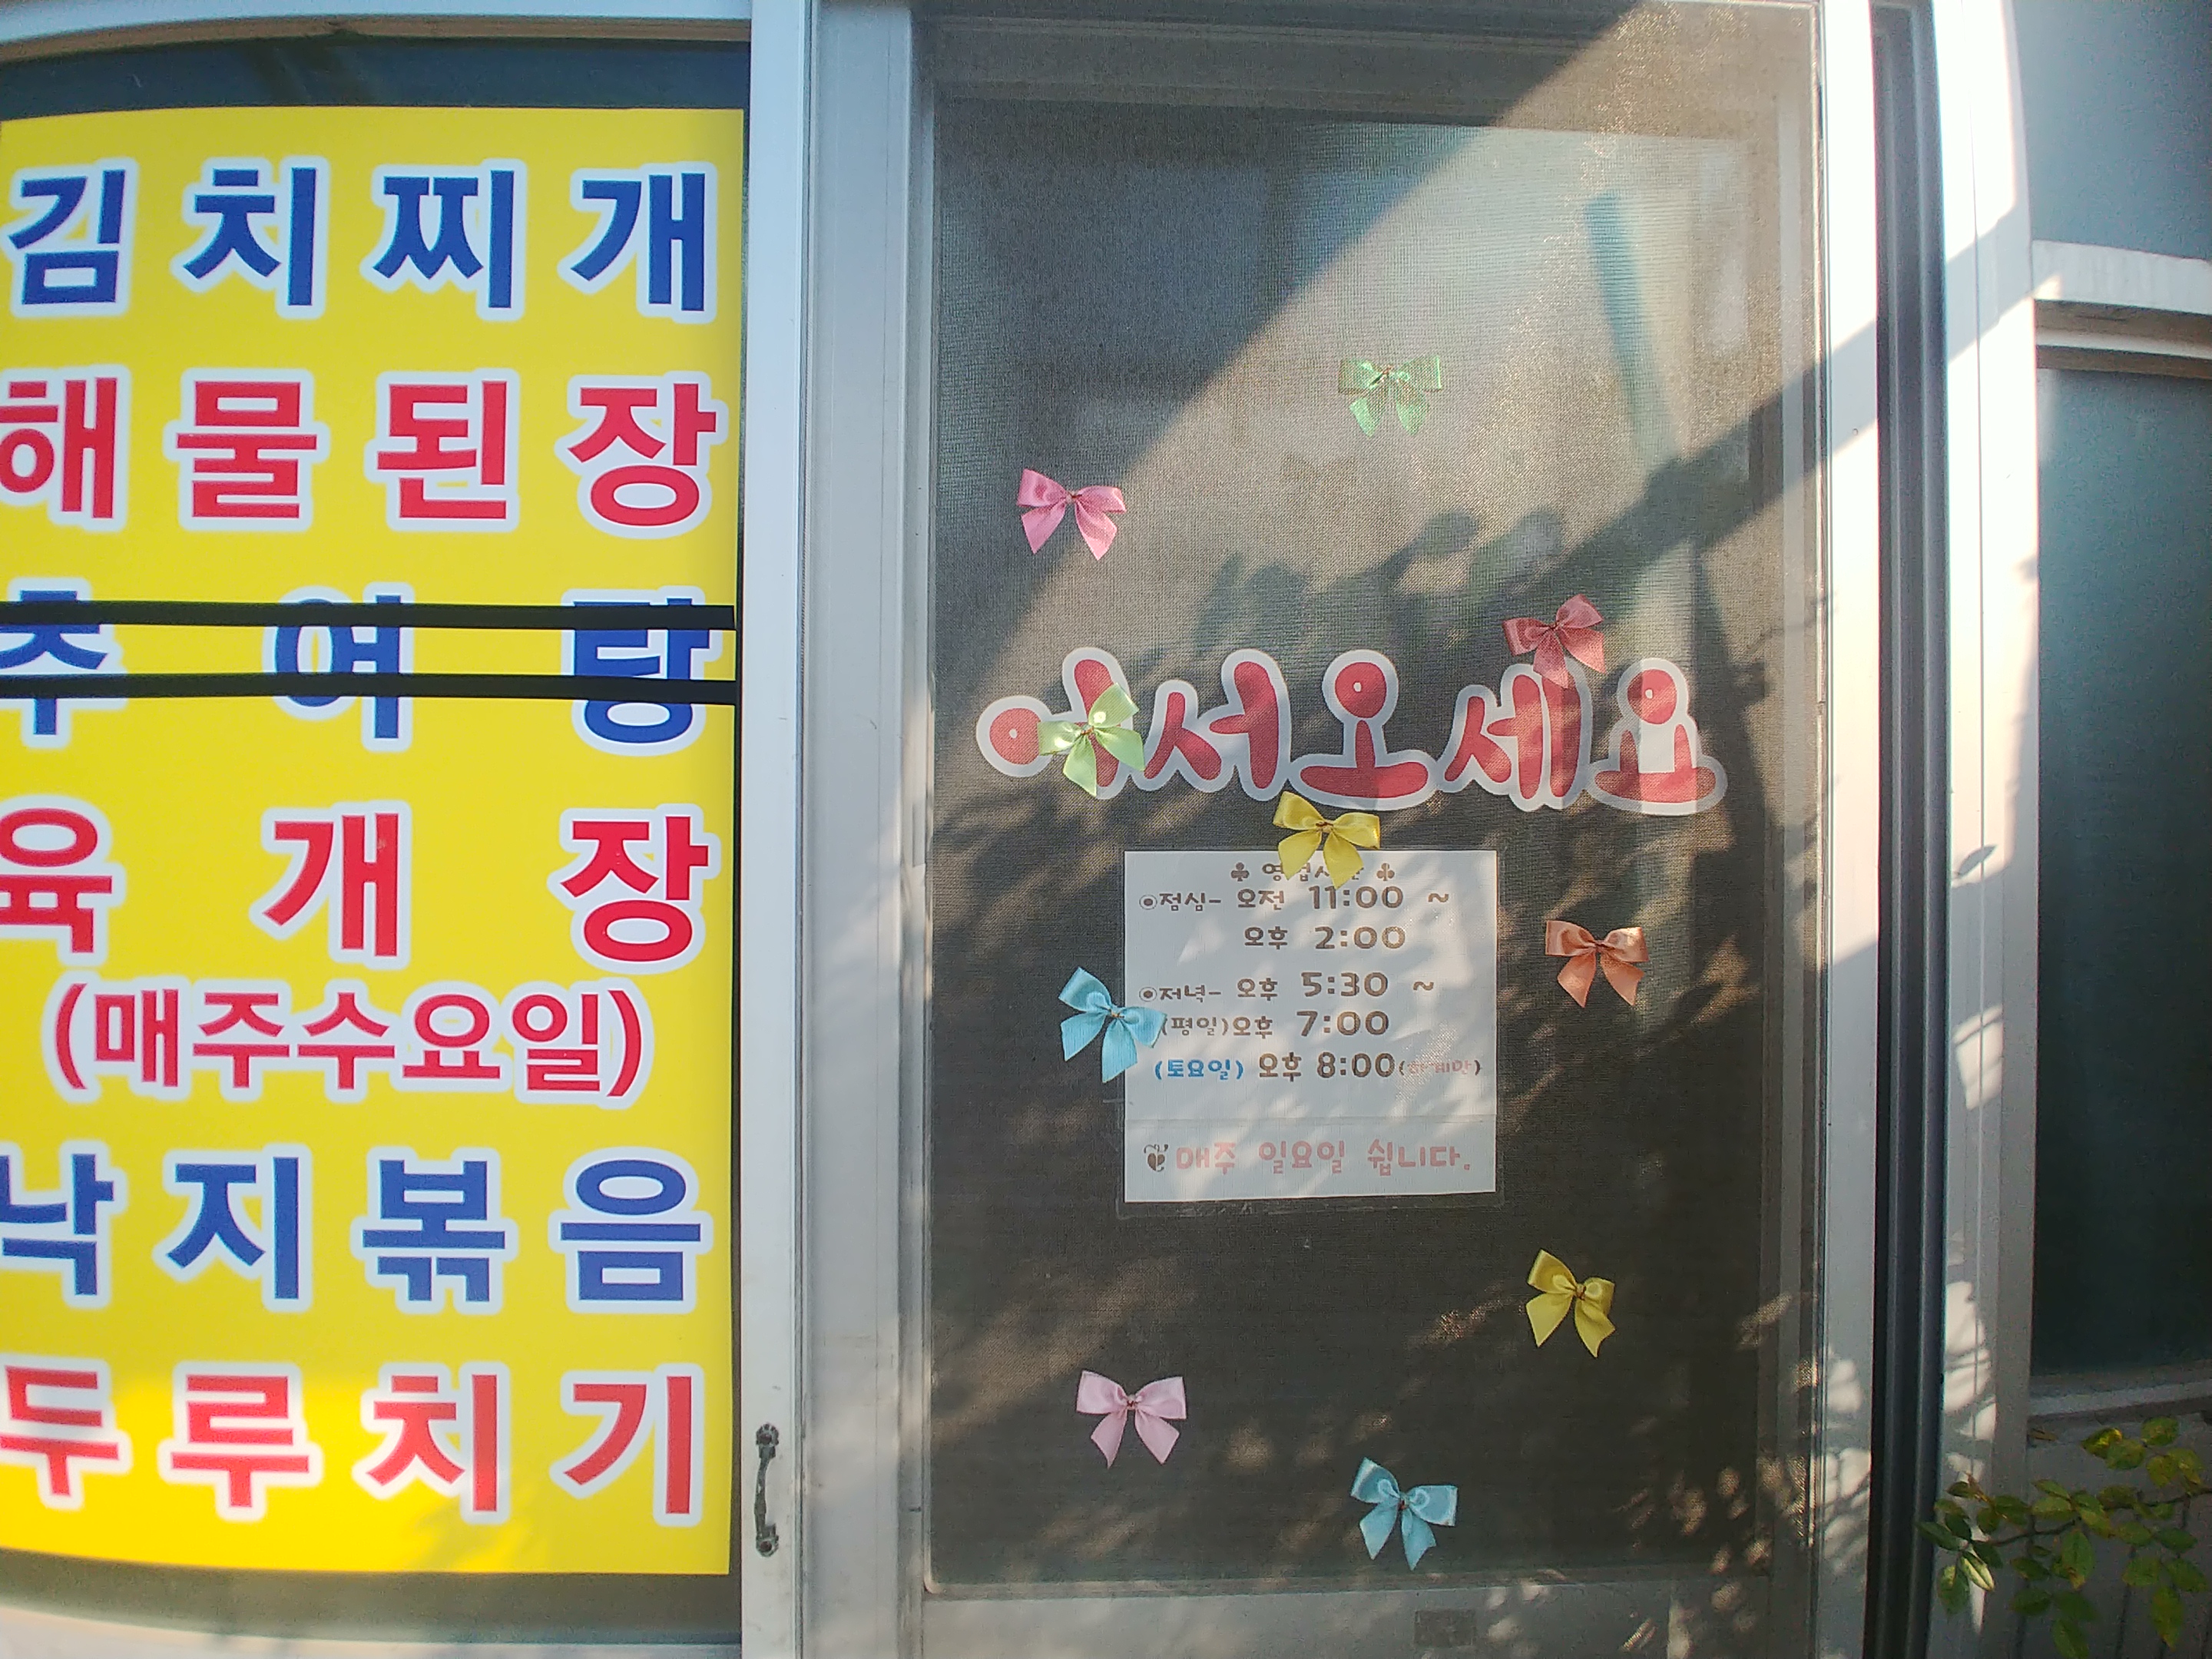 김치찌개
해물된장
추여탕
육개장
(매주수요일)
낙지볶음
두루치기
어서오세요
♣ 영업시간 ♣
◉점심- 오전 11:00 ~
오후 2:00
◉저녁- 오후 5:30 ~
(평일)오후 7:00
(토요일) 오후 8:00(하계만)
매주 일요일 쉽니다.